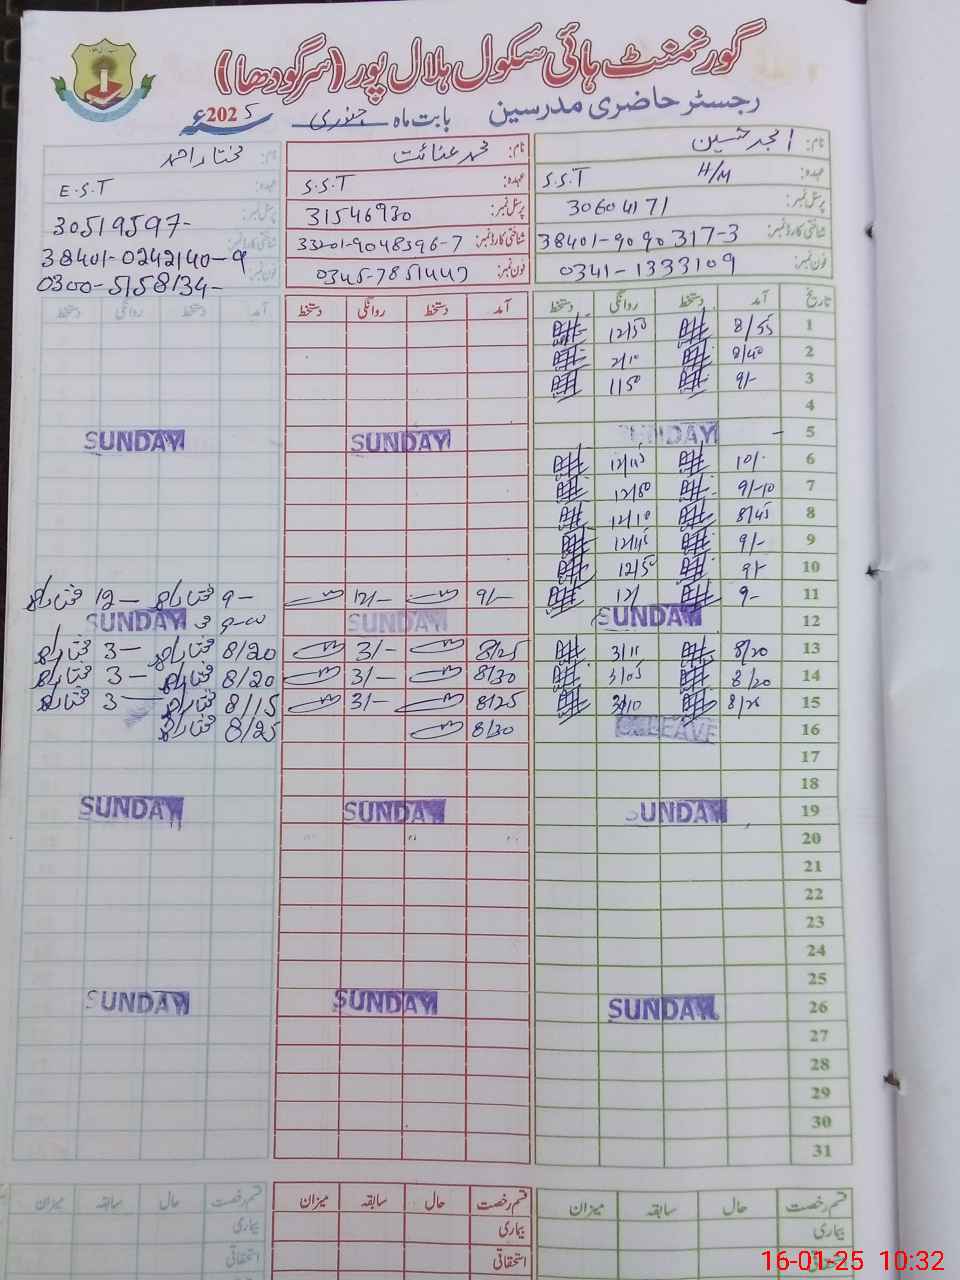 گورنمنٹ ہائی سکول ہلال پور (سرگودھا)
رجسٹر حاضری مدرسین بابت ماہ جنوری 2025ء
نام: امجد حسین نام: محمد عنائت نام: مختار احمد
عہدہ: S.S.T H/M عہدہ: S.S.T عہدہ: E.S.T
پرسنل نمبر: 30604171 پرسنل نمبر: 31546930 پرسنل نمبر: 30519597-
شناختی کارڈ نمبر: 38401-9090317-3 شناختی کارڈ نمبر: شناختی کارڈ نمبر: 38401-0242140-9
فون نمبر: 0341-1333109 فون نمبر: 0345-7851447 فون نمبر: 0300-5158134-
تاریخ آمد دستخط روانگی دستخط آمد دستخط روانگی دستخط آمد دستخط روانگی دستخط
1 8/55 12/50
2 8/40 2/10
3 9/- 1150
4
5 SUNDAY SUNDAY SUNDAY
6 10/- 12/45
7 9/-10 12/50
8 8/45 12/10
9 9/- 12/45
10 9/- 12/50
11 9- 12/ 9/- 12/- 9- مختار احمد 12- مختار احمد
12 SUNDAY SUNDAY SUNDAY
13 8/20 3/11 8/25 3/- 8/20 مختار احمد 3- مختار احمد
14 8/20 3/05 8/30 3/- 8/20 مختار احمد 3- مختار احمد
15 8/20 3/10 8/25 3/- 8/15 مختار احمد 3- مختار احمد
16 C.LEAVE 8/30 8/25 مختار احمد
17
18
19 SUNDAY SUNDAY SUNDAY
20
21
22
23
24
25
26 SUNDAY SUNDAY SUNDAY
27
28
29
30
31
قسم رخصت حال سابقہ میزان قسم رخصت حال سابقہ میزان قسم رخصت حال سابقہ میزان
بیماری بیماری بیماری
استحقاقی استحقاقی استحقاقی
16-01-25 10:32